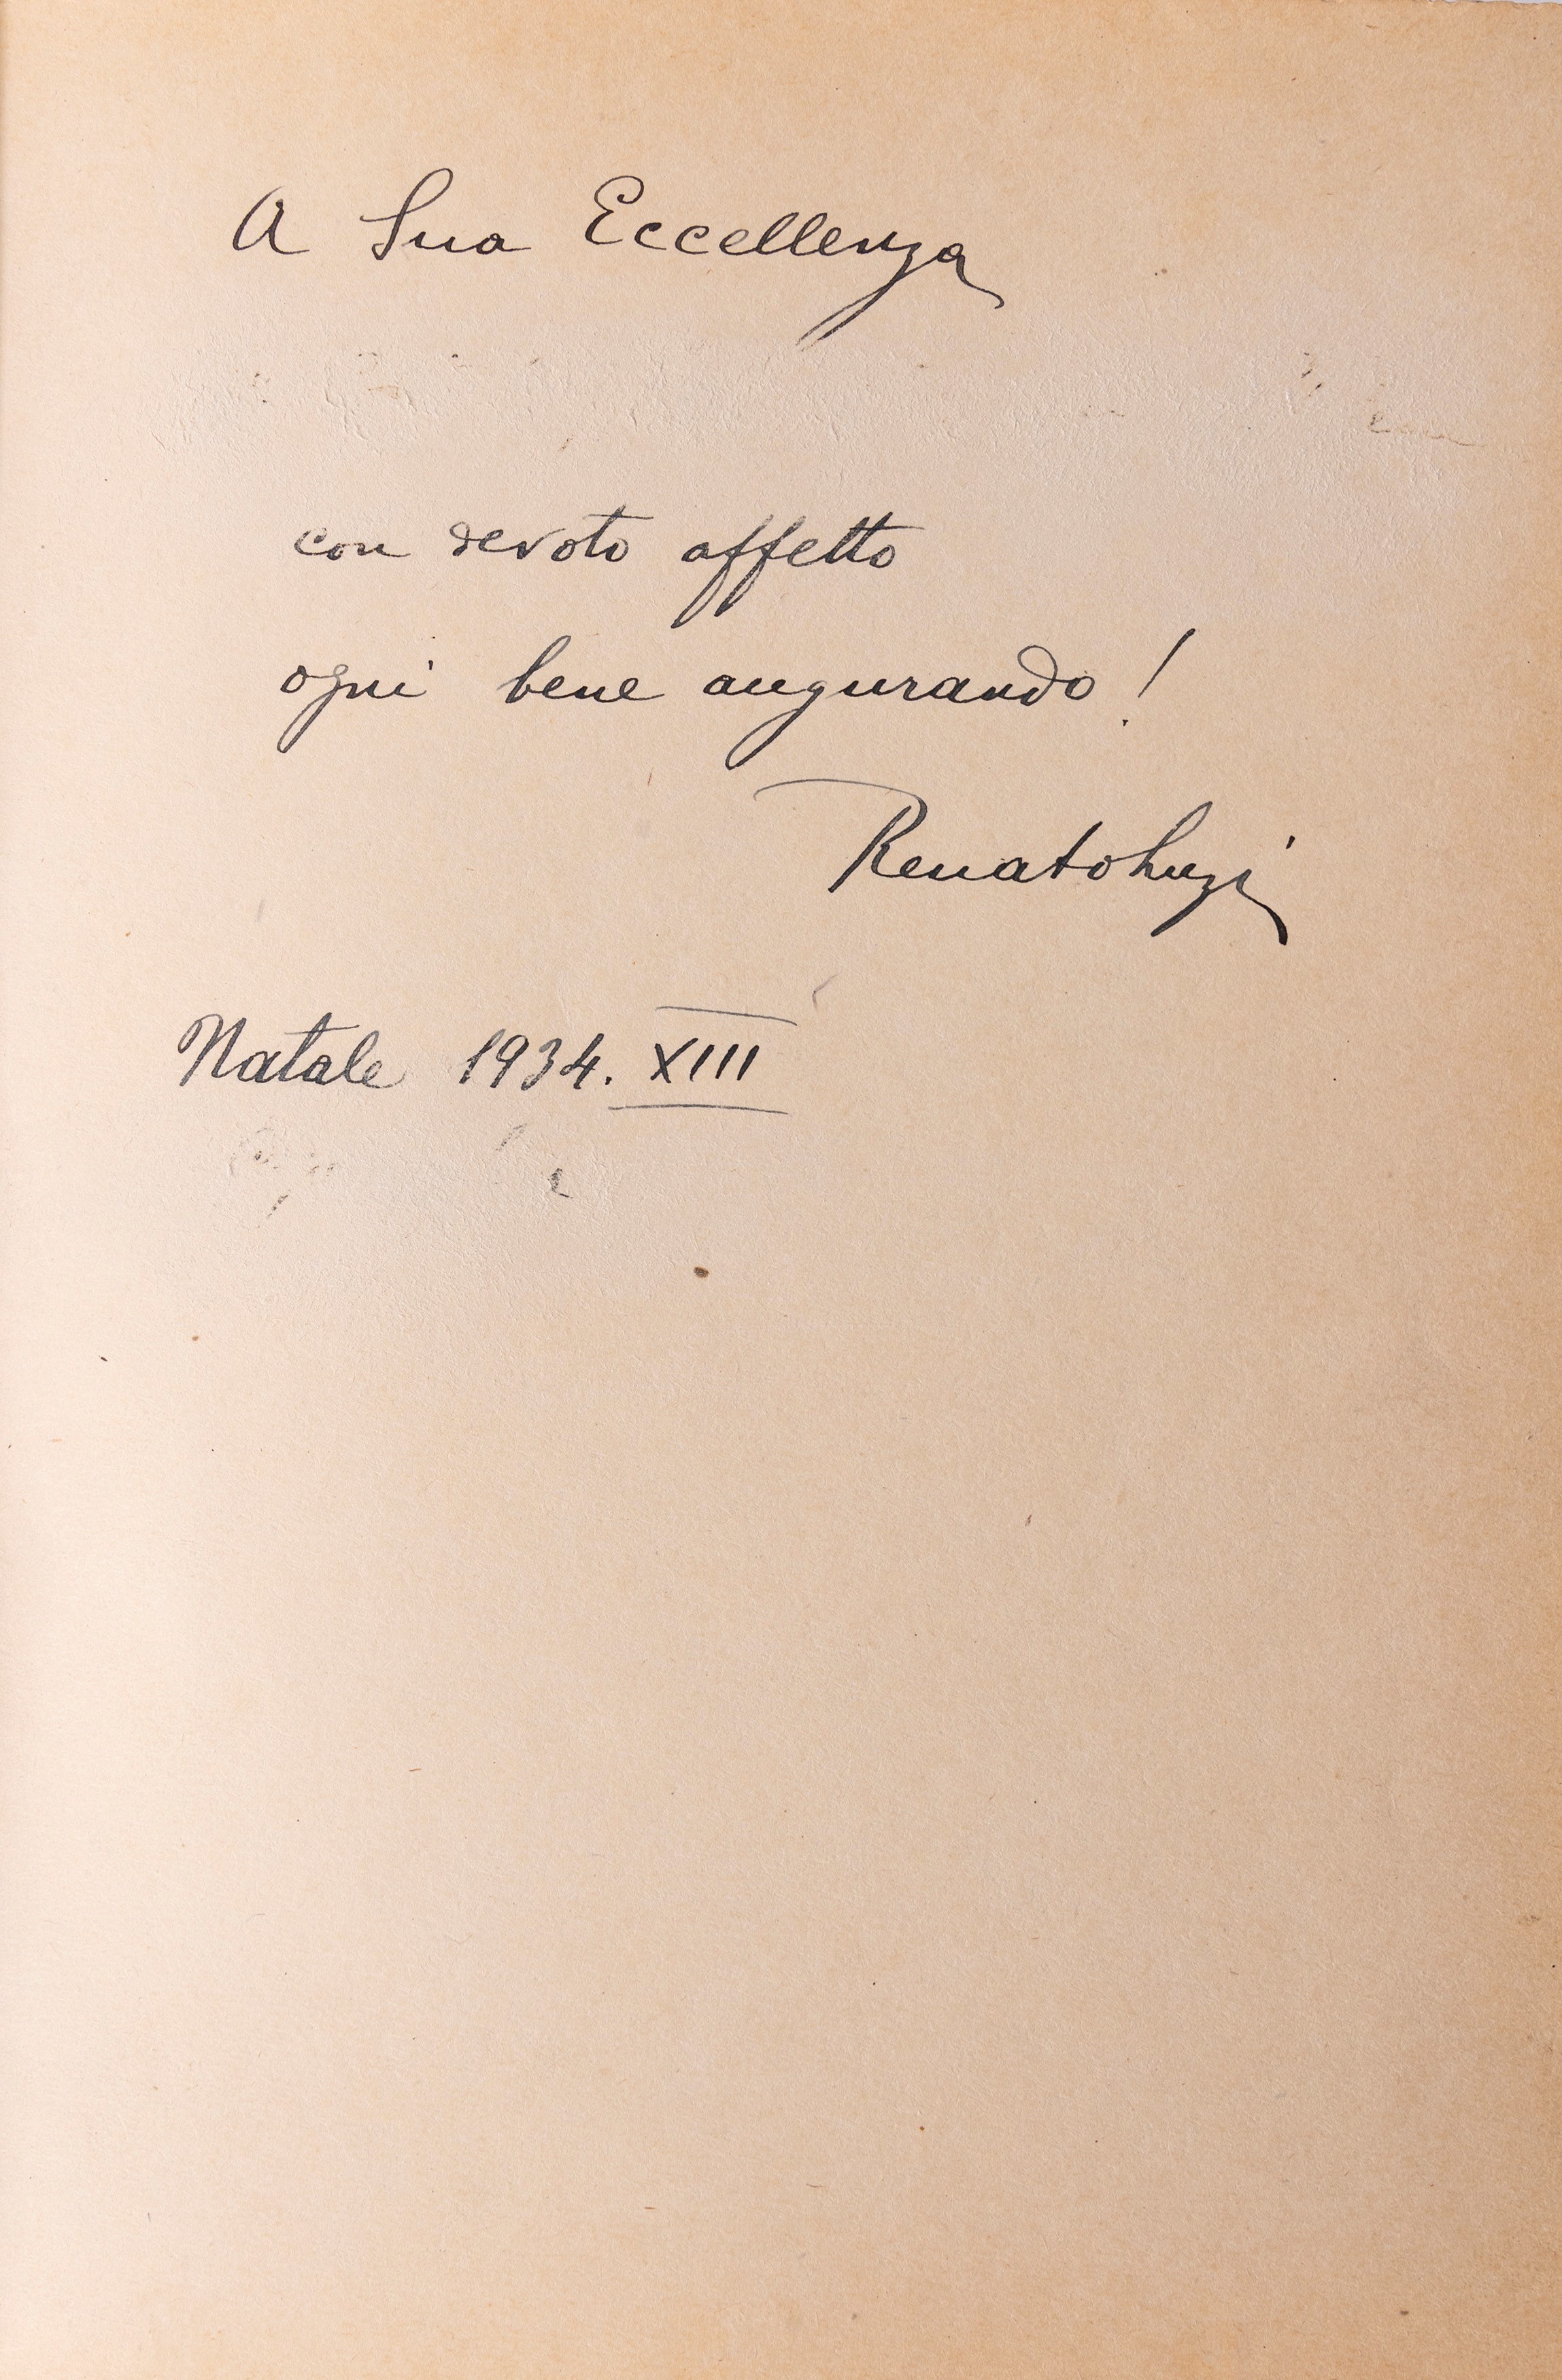 A Sua Eccellenza
con devoto affetto
ogni bene augurando!
Renato Luzi
Natale 1934. XIII